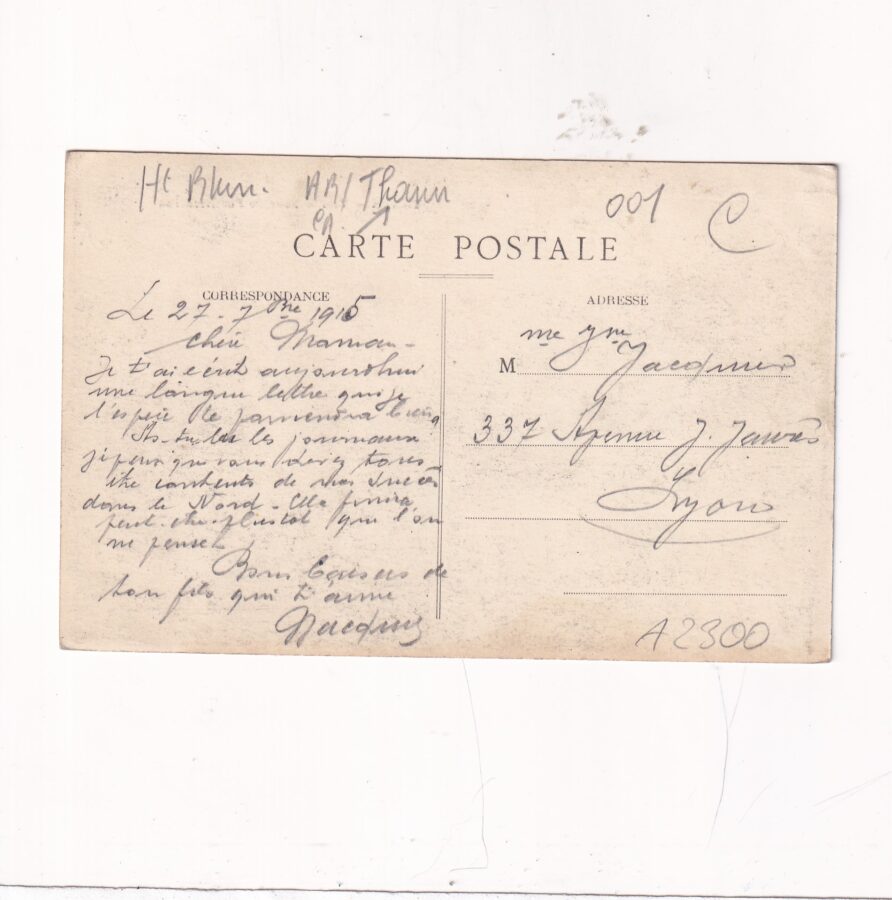 Ht Rhin. ARI Thann
001 C
CARTE POSTALE
CORRESPONDANCE
Le 27-7bre 1915
Chère Maman-
Je t'ai écrit aujourdhui
une longue lettre qui je
l'espère te parviendra bien
As-tu lu les journaux
je pense que vous devez tous
être contents de nos succès
dans le Nord - Elle finira
peut-être plus tot que l'on
ne pense
Bons baisers de
ton fils qui t'aime
Jacquier
ADRESSE
M me Jacquier
337 Avenue J. Jaurès
Lyon
A2300